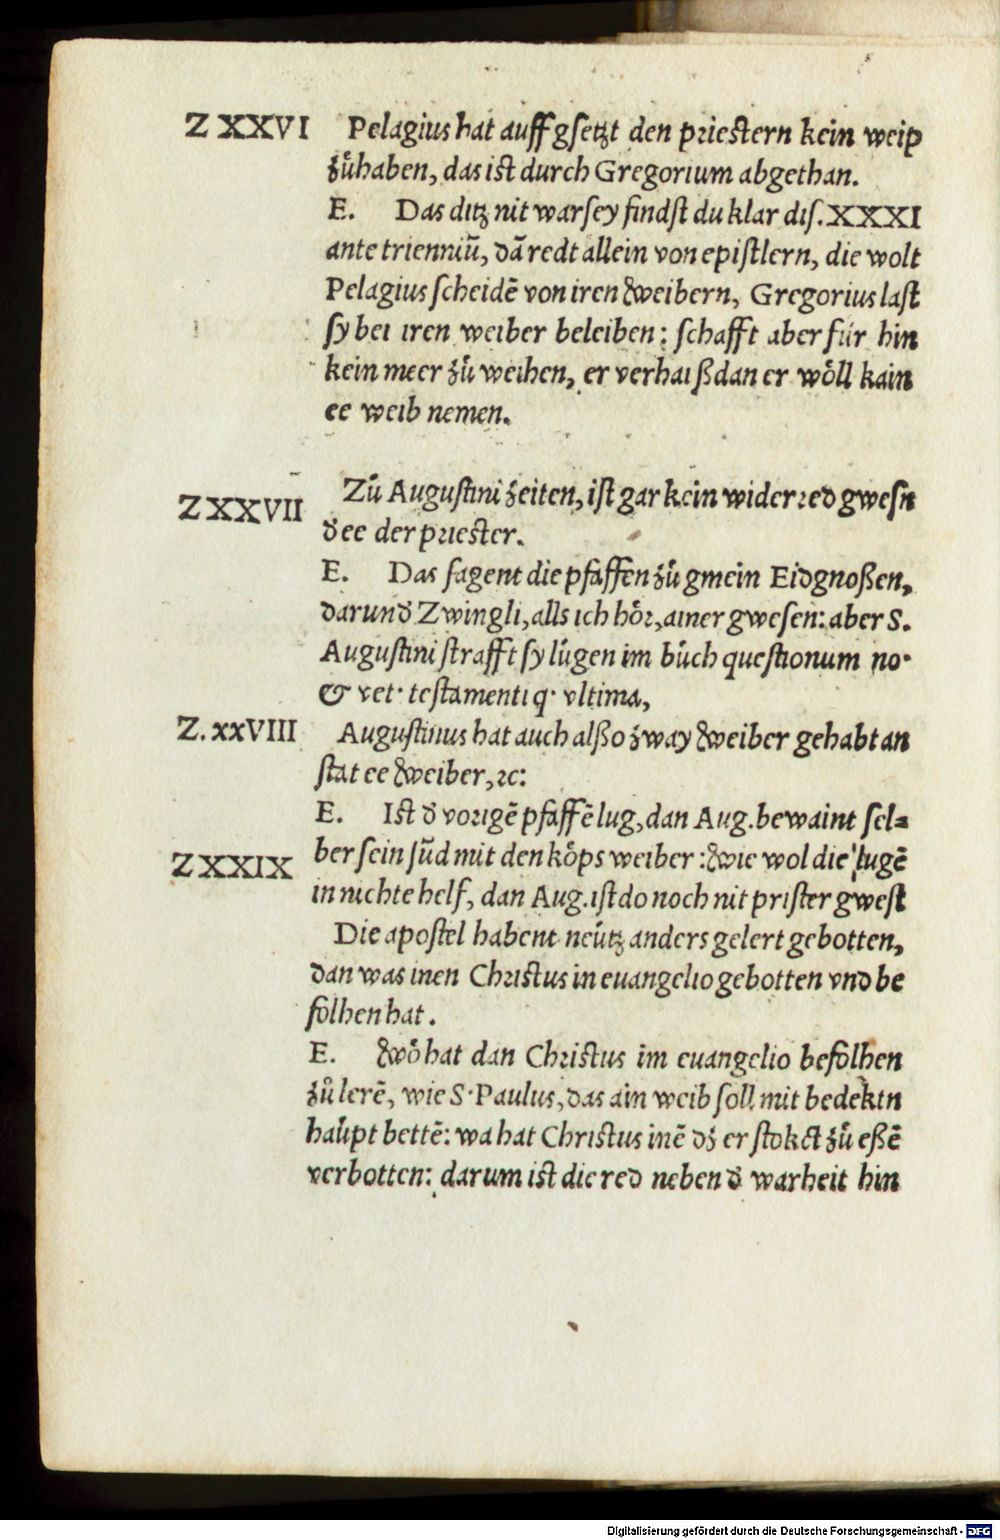 Z XXVI Pelagius hat auffgsetzt den priestern kein weip
zůhaben, das ist durch Gregorium abgethan.
E. Das ditz nit war sey findst du klar dis. XXXI
ante trienniū, dā redt allein von epistlern, die wolt
Pelagius scheidē von iren weibern, Gregorius last
sy bei iren weiber beleiben: schafft aber für hin
kein meer zů weihen, er verhaiß dan er wöll kain
ee weib nemen.
Z XXVII Zů Augustini zeiten, ist gar kein widerred gwesn
d̛ ee der priester.
E. Das sagent die pfaffen zů gmein Eidgnoßen,
darund̛ Zwingli, alls ich hör, ainer gwesen: aber S.
Augustini strafft sy lügen im bůch questionum no·
& vet· testamenti q· vltima,
Z. xxVIII Augustinus hat auch alßo zway weiber gehabt an
stat ee weiber, ꝛc:
E. Ist d̛ vorigē pfaffē lug, dan Aug. bewaint sel⸗
Z XXIX ber sein sūd mit den köps weiber: wie wol die lugē
in nichte helf, dan Aug. ist do noch nit prister gwest
Die apostel habent neütz anders gelert gebotten,
dan was inen Christus in euangelio gebotten vnd be
folhen hat.
E. wŏ hat dan Christus im euangelio befolhen
zů lerē, wie S· Paulus, das ain weib soll mit bedektn
haüpt bettē: wa hat Christus inē dz erstokct zů eßē
verbotten: darum ist die red neben d̛ warheit hin
Digitalisierung gefördert durch die Deutsche Forschungsgemeinschaft - DFG